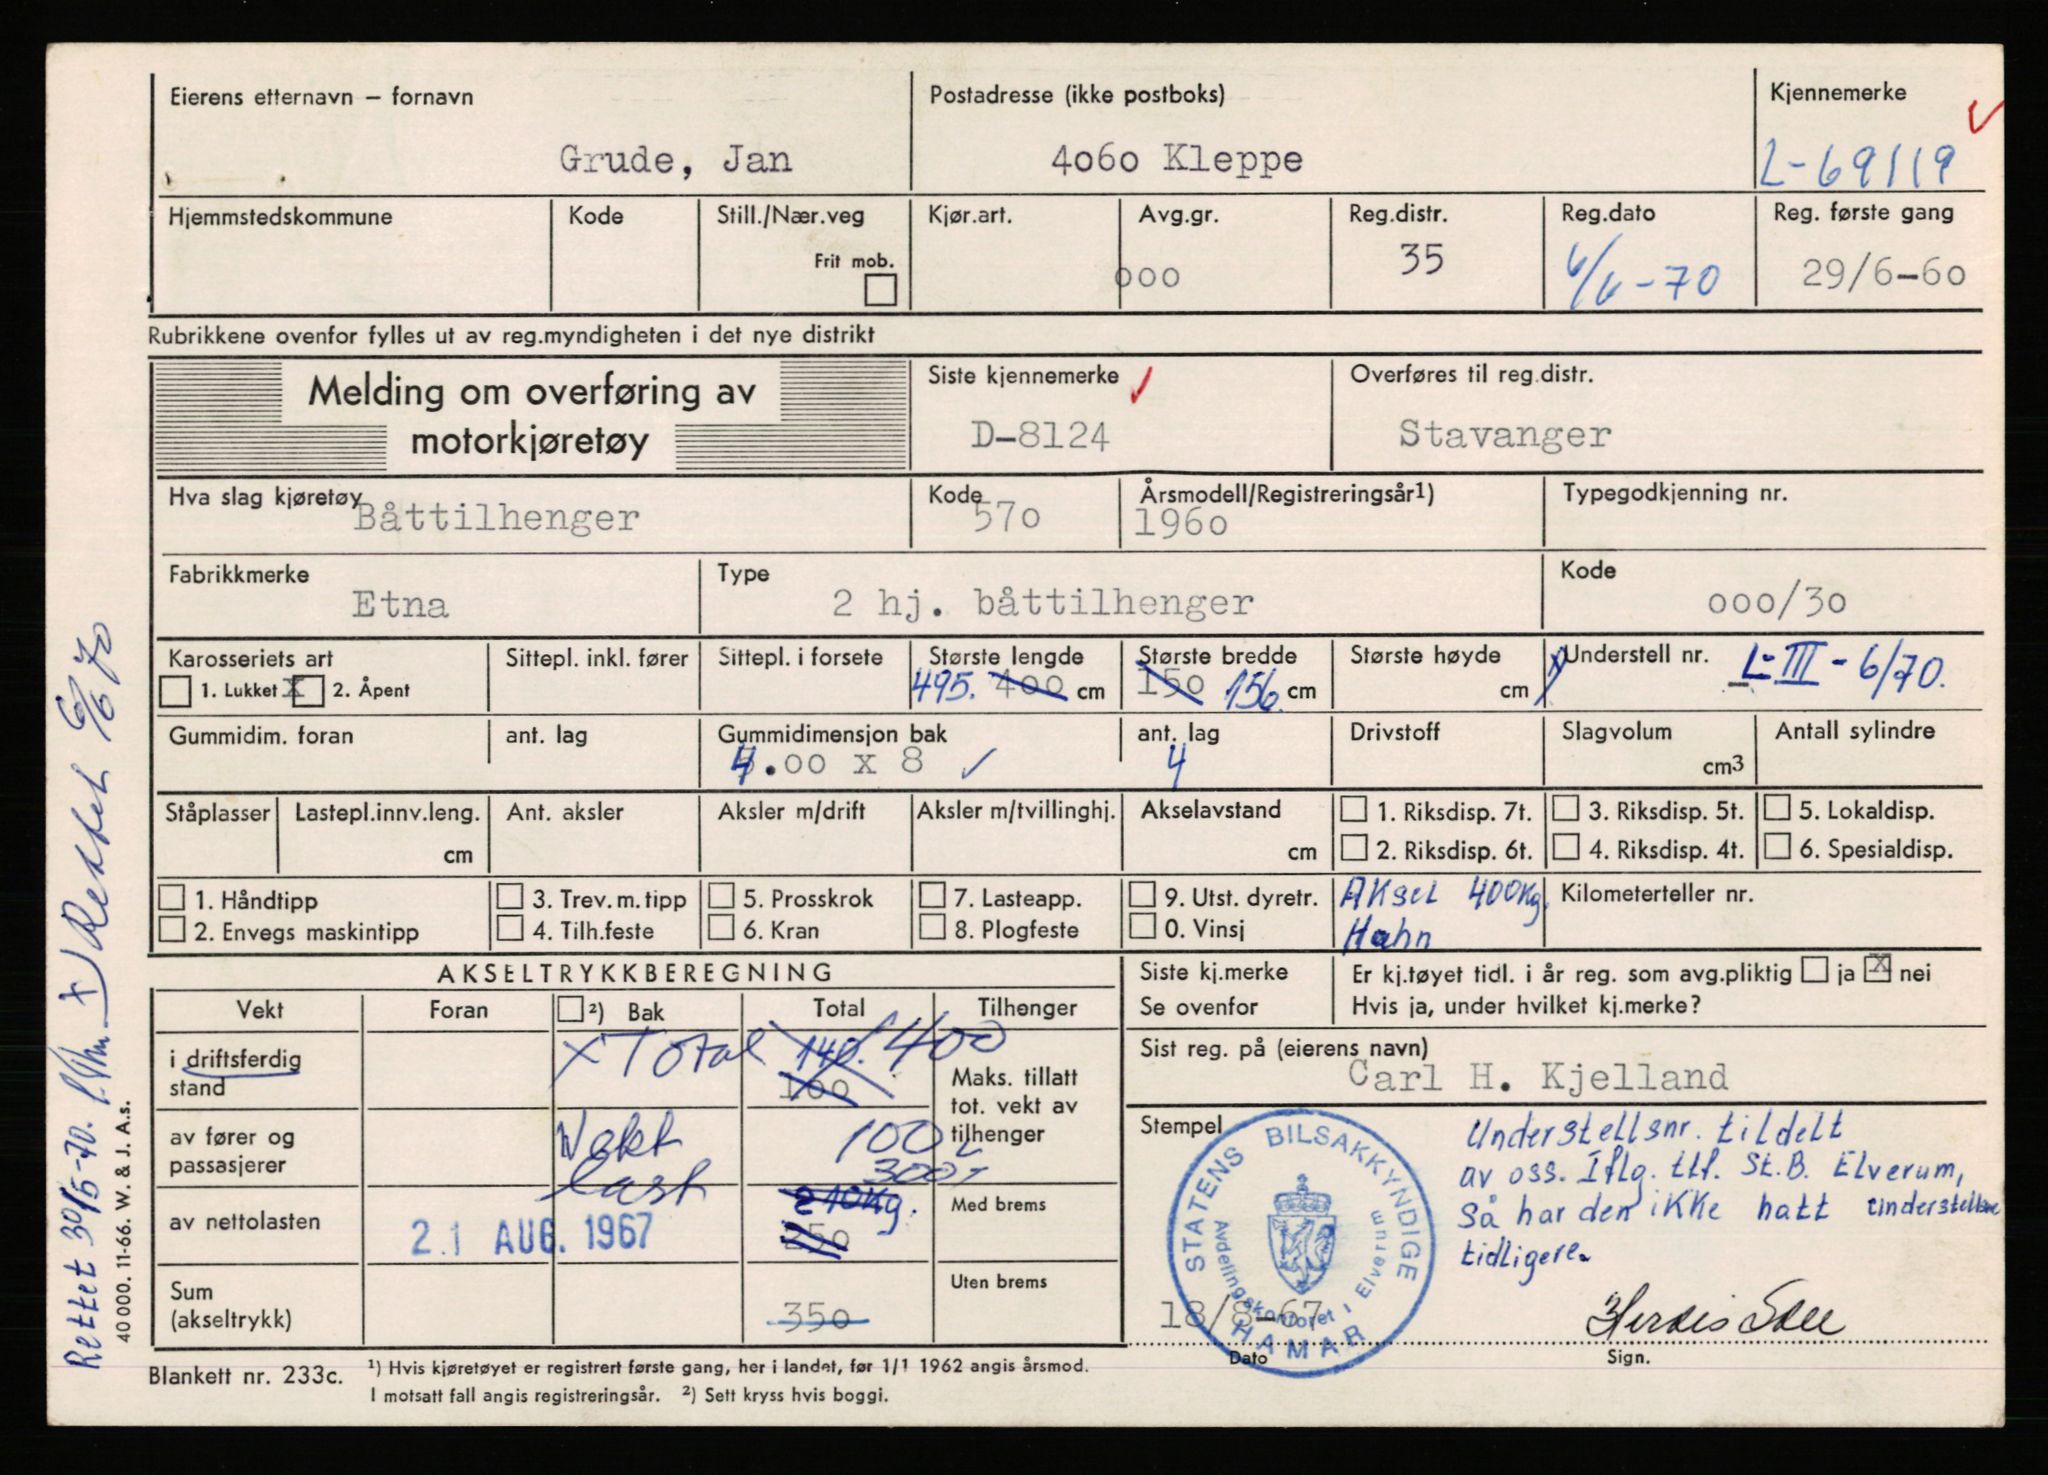 Eierens etternavn – fornavn
Postadresse (ikke postboks)
Kjennemerke
Grude, Jan
4060 Kleppe
L-69119
Hjemmstedskommune
Kode
Still./Nær.veg
Frit mob.
Kjør.art.
Avg.gr.
000
Reg.distr.
35
Reg.dato
6/6-70
Reg. første gang
29/6-60
Rubrikkene ovenfor fylles ut av reg.myndigheten i det nye distrikt
Melding om overføring av
motorkjøretøy
Siste kjennemerke
D-8124
Overføres til reg.distr.
Stavanger
Hva slag kjøretøy
Båttilhenger
Kode
570
Årsmodell/Registreringsår1)
1960
Typegodkjenning nr.
Fabrikkmerke
Etna
Type
2 hj. båttilhenger
Kode
000/30
Karosseriets art
1. Lukket X 2. Åpent
Sittepl. inkl. fører
Sittepl. i forsete
Største lengde
495. 400 cm
Største bredde
150 156 cm
Største høyde
cm
Understell nr.
L-III-6/70.
Gummidim. foran
ant. lag
Gummidimensjon bak
4.00 x 8
ant. lag
4
Drivstoff
Slagvolum
cm3
Antall sylindre
Ståplasser
Lastepl.innv.leng.
cm
Ant. aksler
Aksler m/drift
Aksler m/tvillinghj.
Akselavstand
cm
1. Riksdisp. 7t.
2. Riksdisp. 6t.
3. Riksdisp. 5t.
4. Riksdisp. 4t.
5. Lokaldisp.
6. Spesialdisp.
1. Håndtipp
2. Envegs maskintipp
3. Trev. m. tipp
4. Tilh.feste
5. Prosskrok
6. Kran
7. Lasteapp.
8. Plogfeste
9. Utst. dyretr.
0. Vinsj
Aksel 400kg.
Hahn
Kilometerteller nr.
AKSELTRYKKBEREGNING
Vekt
Foran
2) Bak
Total
Tilhenger
i driftsferdig
stand
x Total 140. 400
100
Maks. tillatt
tot. vekt av
tilhenger
av fører og
passasjerer
Vekt 100
last 300
av nettolasten
21 AUG. 1967
210kg.
250
Med brems
Sum
(akseltrykk)
350
Uten brems
Siste kj.merke
Se ovenfor
Er kj.tøyet tidl. i år reg. som avg.pliktig ja X nei
Hvis ja, under hvilket kj.merke?
Sist reg. på (eierens navn)
Carl H. Kjelland
Stempel
STATENS BILSAKKYNDIGE
Avdelingskontoret i Elverum
HAMAR
Understellsnr. tildelt
av oss. Iflg. tlf. St.B. Elverum,
Så har den ikke hatt understellsnr
tidligere.
18/8-67
Dato
Sign.
Blankett nr. 233c.
1) Hvis kjøretøyet er registrert første gang, her i landet, før 1/1 1962 angis årsmod.
I motsatt fall angis registreringsår. 2) Sett kryss hvis boggi.
Rettet 30/5-70.
x) Rettet 6/6 70
40 000. 11-66. W. & J. A.s.